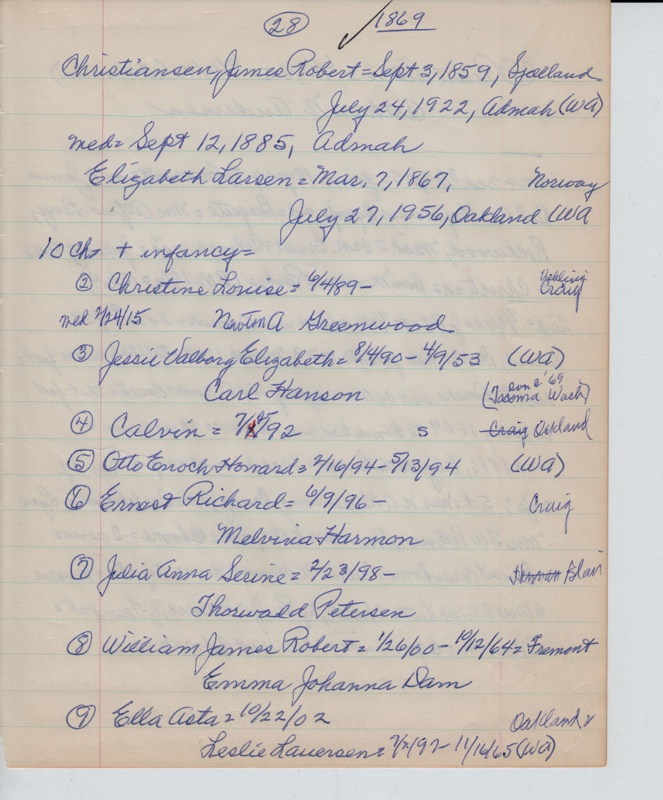 28 ✓ 1869
Christiansen, James Robert = Sept 3, 1859, Sjælland
July 24, 1922, Admah (WA)
med = Sept 12, 1885, Admah
Elizabeth Larsen = Mar. 7, 1867, Norway
July 27, 1956, Oakland (WA
10 Ch + infancy =
② Christine Louise = 6/4/89 - Craig
med 2/24/15 Newton A Greenwood
③ Jessie Valborg Elizabeth = 8/4/90 - 4/9/53 (WA)
Carl Hanson (Tacoma Wash)
④ Calvin = 92 s Craig Oakland
⑤ Otto Enoch Howard = 2/16/94 - 5/13/94 (WA)
⑥ Ernest Richard = 6/9/96 - Craig
Melvina Harmon
⑦ Julia Anna Serine = 2/23/98 - Herman Blair
Thorwald Petersen
⑧ William James Robert = 1/26/00 - 10/12/64 = Fremont
Emma Johanna Dam
⑨ Ella Asta = 10/22/02 Oakland
Leslie Lauersen = 7/2/97 - 11/16/65 (WA)